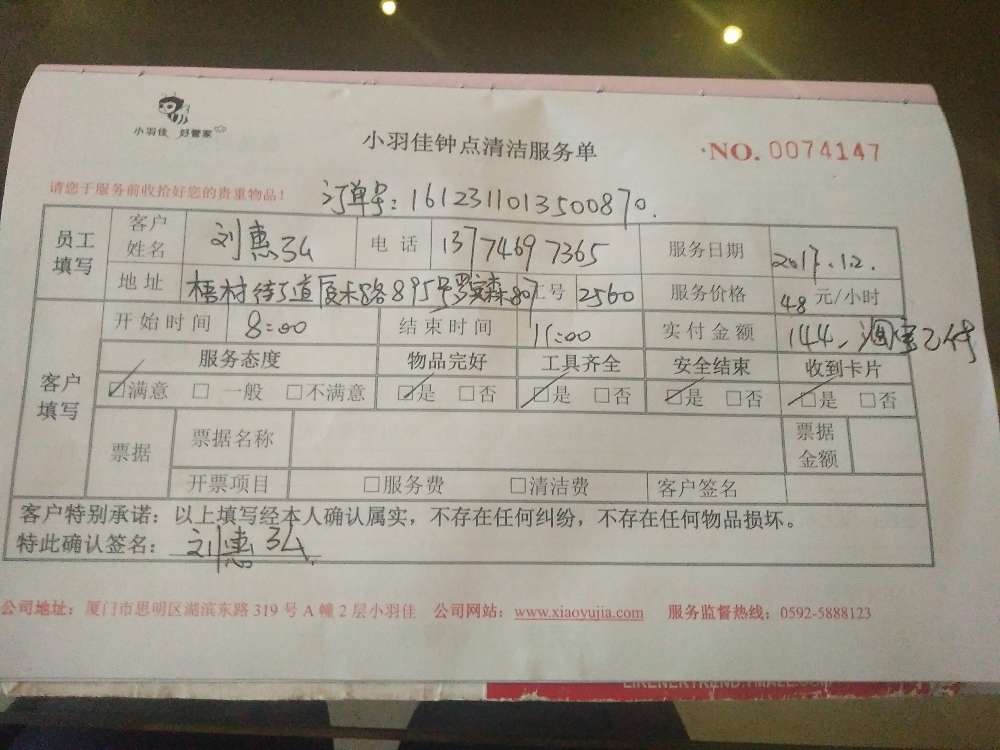 小羽佳 好管家
小羽佳钟点清洁服务单
NO. 0074147
请您于服务前收拾好您的贵重物品！
订单号：1612311013500870.
员工填写 客户姓名 刘惠弘 电话 13774697365 服务日期 2017.1.2.
地址 梧村街道厦禾路895号罗宾森807 工号 2560 服务价格 48 元/小时
客户填写 开始时间 8:00 结束时间 11:00 实付金额 144. 淘宝已付
服务态度 物品完好 工具齐全 安全结束 收到卡片
☑满意 □ 一般 □不满意 ☑是 □否 ☑是 □否 ☑是 □否 ☑是 □否
票据 票据名称 票据金额
开票项目 □服务费 □清洁费 客户签名
客户特别承诺：以上填写经本人确认属实，不存在任何纠纷，不存在任何物品损坏。
特此确认签名： 刘惠弘
公司地址：厦门市思明区湖滨东路 319 号 A 幢 2 层小羽佳 公司网站：www.xiaoyujia.com 服务监督热线：0592-5888123